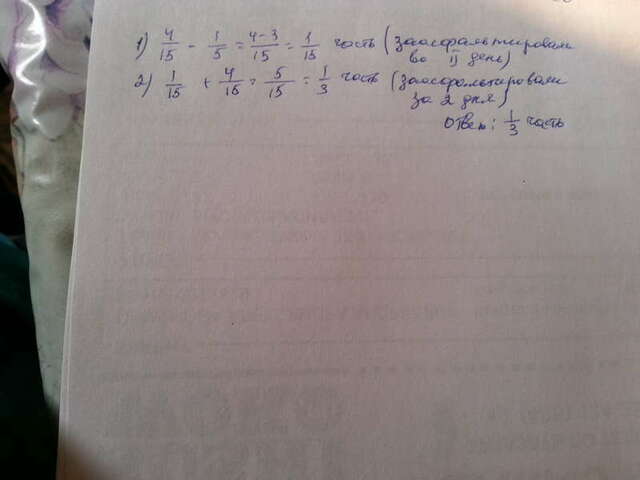 1) 4/15 - 1/5 = 4-3/15 = 1/15 часть (заасфальтировали
во II день)
2) 1/15 + 4/15 = 5/15 = 1/3 часть (заасфальтировали
за 2 дня)
Ответ: 1/3 часть